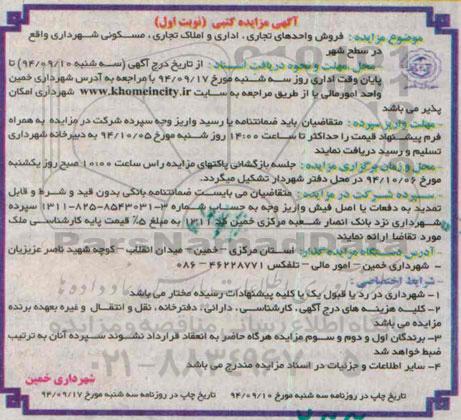 آگهی مزایده کتبی (نوبت اول)
موضوع مزایده: فروش واحدهای تجاری ، اداری و املاک تجاری ، مسکونی شهرداری واقع
در سطح شهر
محل، مهلت و نحوه دریافت اسناد : از تاریخ درج آگهی (سه شنبه ۹۴/۰۹/۱۰) تا
پایان وقت اداری روز سه شنبه مورخ ۹۴/۰۹/۱۷ با مراجعه به آدرس شهرداری خمین
واحد امورمالی یا از طریق مراجعه به سایت www.khomeincity.ir شهرداری امکان
پذیر می باشد
مهلت واریز سپرده : متقاضیان باید ضمانتنامه یا رسید واریز وجه سپرده شرکت در مزایده به همراه
فرم پیشنهاد قیمت را حداکثر تا ساعت ۱۴:۰۰ روز شنبه مورخ ۹۴/۱۰/۰۵ به دبیرخانه شهرداری
تسلیم و رسید دریافت نمایند
محل و زمان برگزاری مزایده: جلسه بازگشائی پاکتهای مزایده راس ساعت ۱۰:۰۰ صبح روز یکشنبه
مورخ ۹۴/۱۰/۰۶ در محل دفتر شهردار تشکیل میگردد.
سپرده شرکت در مزایده : متقاضیان می بایست ضمانتنامه بانکی بدون قید و شرط و قابل
تمدید به دفعات یا اصل فیش واریز وجه به حساب شماره ۳-۸۵۴۳۰۳۱-۸۲۵-۱۳۱۱ سپرده
شهرداری نزد بانک انصار شعبه مرکزی خمین کد ۱۳۱۱ به مبلغ ۵٪ قیمت پایه کارشناسی ملک
مورد تقاضا ارائه نمایند
آدرس دستگاه مزایده گذار: استان مرکزی – خمین – میدان انقلاب – کوچه شهید ناصر عزیزیان
– شهرداری خمین – امور مالی – تلفکس ۴۶۲۲۸۷۷۱ – ۰۸۶
شرایط اختصاصی :
۱– شهرداری در رد یا قبول یک یا کلیه پیشنهادات رسیده مختار می باشد
۲– کلیه هزینه های درج آگهی، کارشناسی ، دارائی ، دفترخانه ، نقل و انتقال و غیره بعهده برنده
مزایده می باشد
۳– برندگان اول و دوم و سوم مزایده هرگاه حاضر به انعقاد قرارداد نشوند سپرده آنان به ترتیب
ضبط خواهد شد
۴– سایر اطلاعات و جزئیات در اسناد مزایده مندرج می باشد
شهرداری خمین
تاریخ چاپ در روزنامه سه شنبه مورخ ۹۴/۰۹/۱۰ تاریخ چاپ در روزنامه سه شنبه مورخ ۹۴/۰۹/۱۷